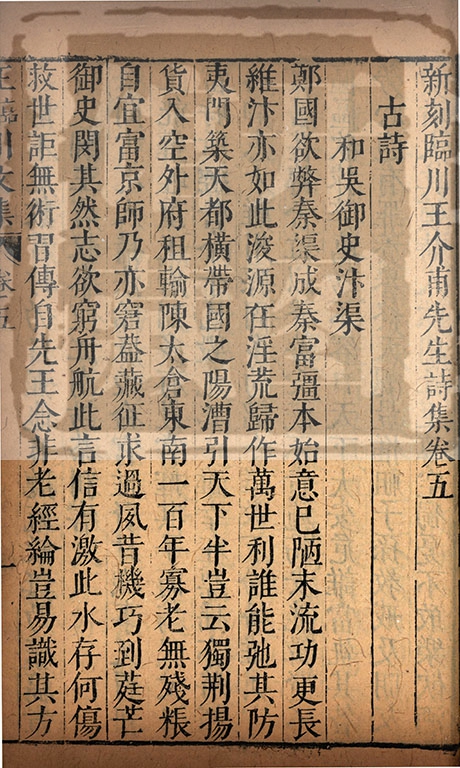 新刻臨川王介甫先生詩集卷五
古詩
和吳御史汴渠
鄭國欲弊秦渠成秦富彊本始意已陋末流功更長
維汴亦如此浚源在淫荒歸作萬世利誰能弛其防
夷門築天都橫帶國之陽漕引天下半豈云獨荆揚
貨入空外府租輸陳太倉東南一百年寡老無殘粻
自宜富京師乃亦窘葢藏征求過夙昔機巧到莛芒
御史閔其然志欲窮舟航此言信有激此水存何傷
救世詎無術習傳自先王念非老經綸豈易識其方
王臨川文集 卷之五 一